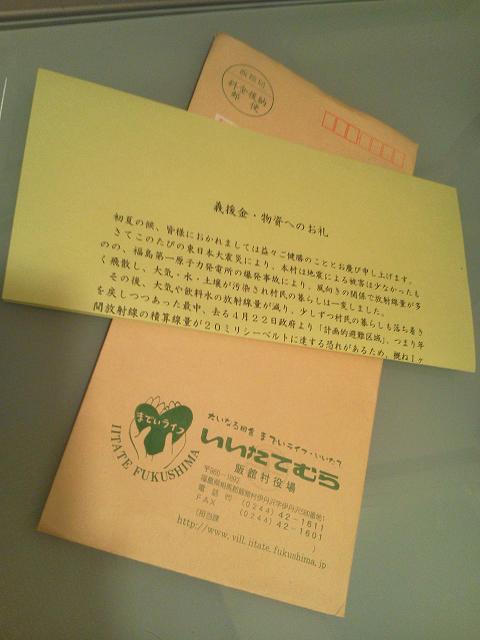 飯舘局
料金後納
郵便
義援金・物資へのお礼
初夏の候、皆様におかれましては益々ご健勝のこととお慶び申し上げます。
さてこのたびの東日本大震災により、本村は地震による被害は少なかったも
のの、福島第一原子力発電所の爆発事故により、風向きの関係で放射線量が多
く飛散し、大気・水・土壌が汚染され村民の暮らしは一変しました。
その後、大気や飲料水の放射線量が減り、少しずつ村民の暮らしも落ち着き
を戻しつつあった最中、去る4月22日政府より「計画的避難区域」、つまり年
間放射線の積算線量が20ミリシーベルトに達する恐れがあるため、概ね1ヶ
までいライフ
IITATE FUKUSHIMA
大いなる田舎 までいライフ・いいたて
いいたてむら
飯舘村役場
〒960-1892
福島県相馬郡飯舘村伊丹沢字伊丹沢580番地1
電話 代 (0244)42-1611
FAX (0244)42-1601
(担当課 )
http://www.vill.iitate.fukushima.jp